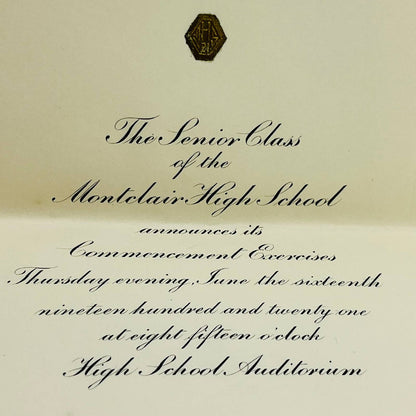 MHS
21
The Senior Class
of the
Montclair High School
announces its
Commencement Exercises
Thursday evening, June the sixteenth
nineteen hundred and twenty one
at eight fifteen o'clock
High School Auditorium